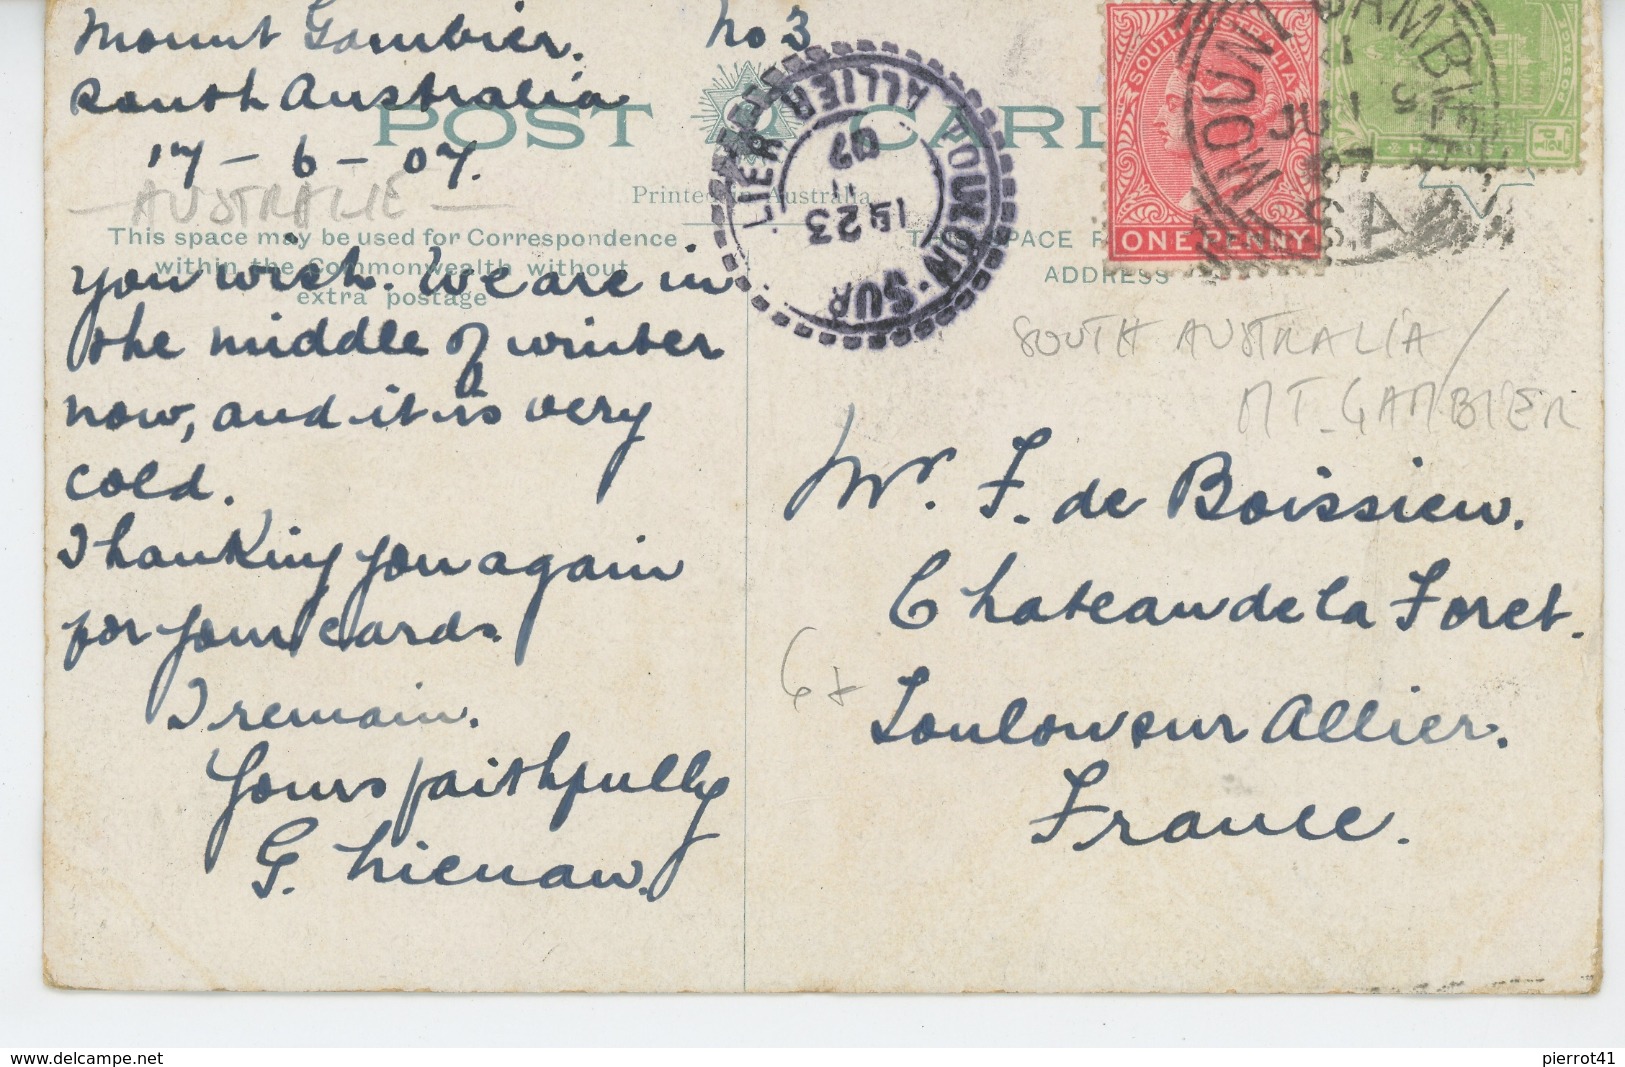 Mount Gambier.
No 3
South Australia
17 - 6 - 07.
AUSTRALIE
POST CARD
Printed in Australia
This space may be used for Correspondence
within the Commonwealth without
extra postage
ADDRESS
you wish. We are in
the middle of winter
now, and it is very
cold.
Thanking you again
for your cards.
I remain.
Yours faithfully
G.
SOUTH AUSTRALIA
ONE PENNY
POSTAGE
MOUNT GAMBIER
S.A
ALLIER
23
07
SOUTH AUSTRALIA /
MT. GAMBIER
Mr. F. de Boissieu.
Chateau de la Foret.
Loulon sur Allier.
France.
www.delcampe.net
pierrot41